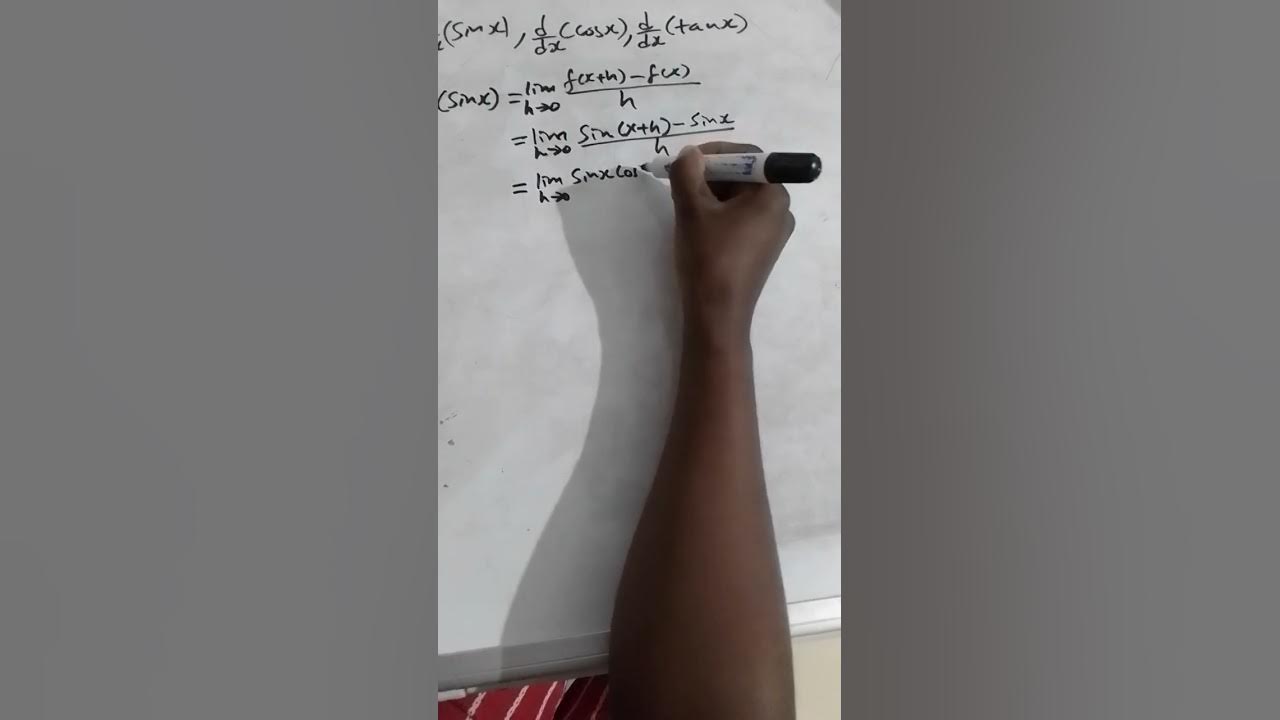 (Sinx), d/dx(Cosx), d/dx(tanx)
(Sinx) = lim h→0 f(x+h)-f(x)/h
= lim h→0 Sin(x+h)-Sinx/h
= lim h→0 Sinx Cos